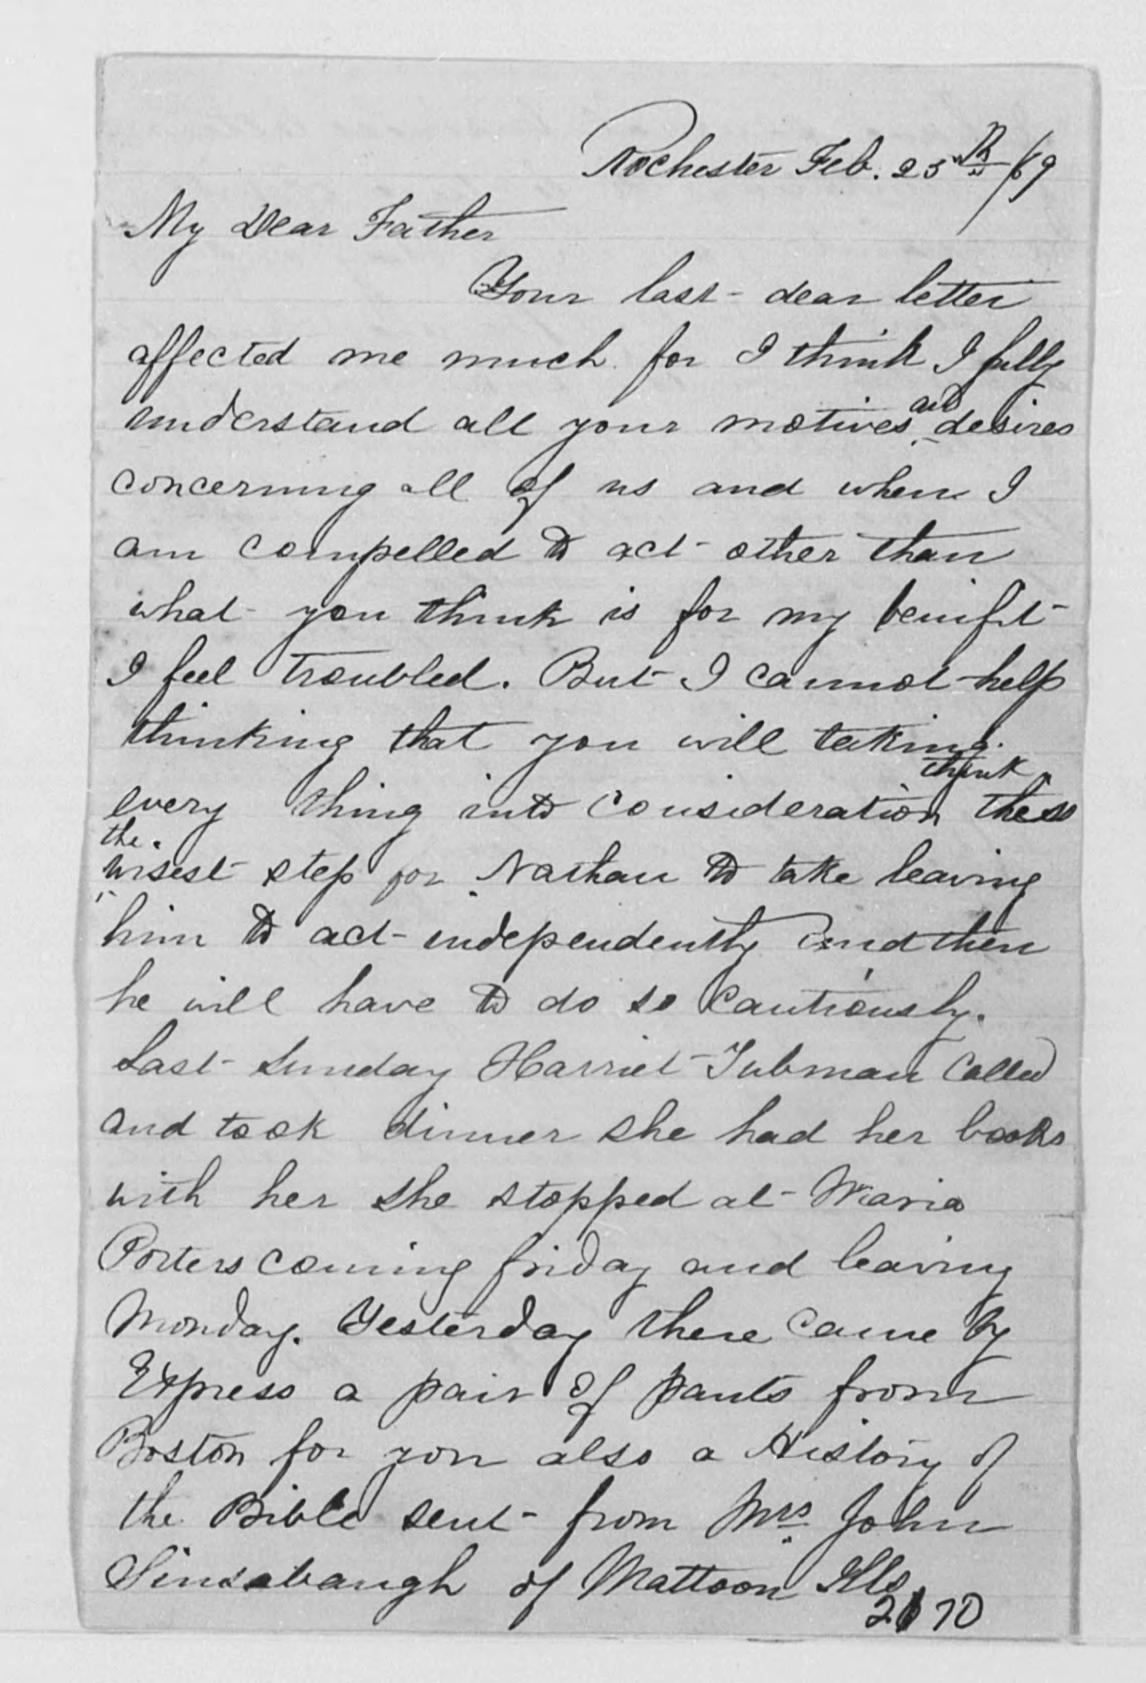 Rochester Feb. 25th /69
My Dear Father
Your last dear letter
affected me much for I think I fully
understand all your motives and desires
concerning all of us and when I
am compelled to act other than
what you think is for my benifit
I feel troubled. But I cannot help
thinking that you will taking
think
every thing into consideration these
the
wisest step for Nathan to take leaving
him to act independently and then
he will have to do so cautiously.
Last Sunday Harriet Tubman called
and took dinner she had her books
with her she stopped at Maria
Porters coming friday and leaving
Monday. Yesterday there came by
Express a pair of pants from
Boston for you also a History of
the Bible sent from Mrs John
Sinsabaugh of Mattoon Ills
2170